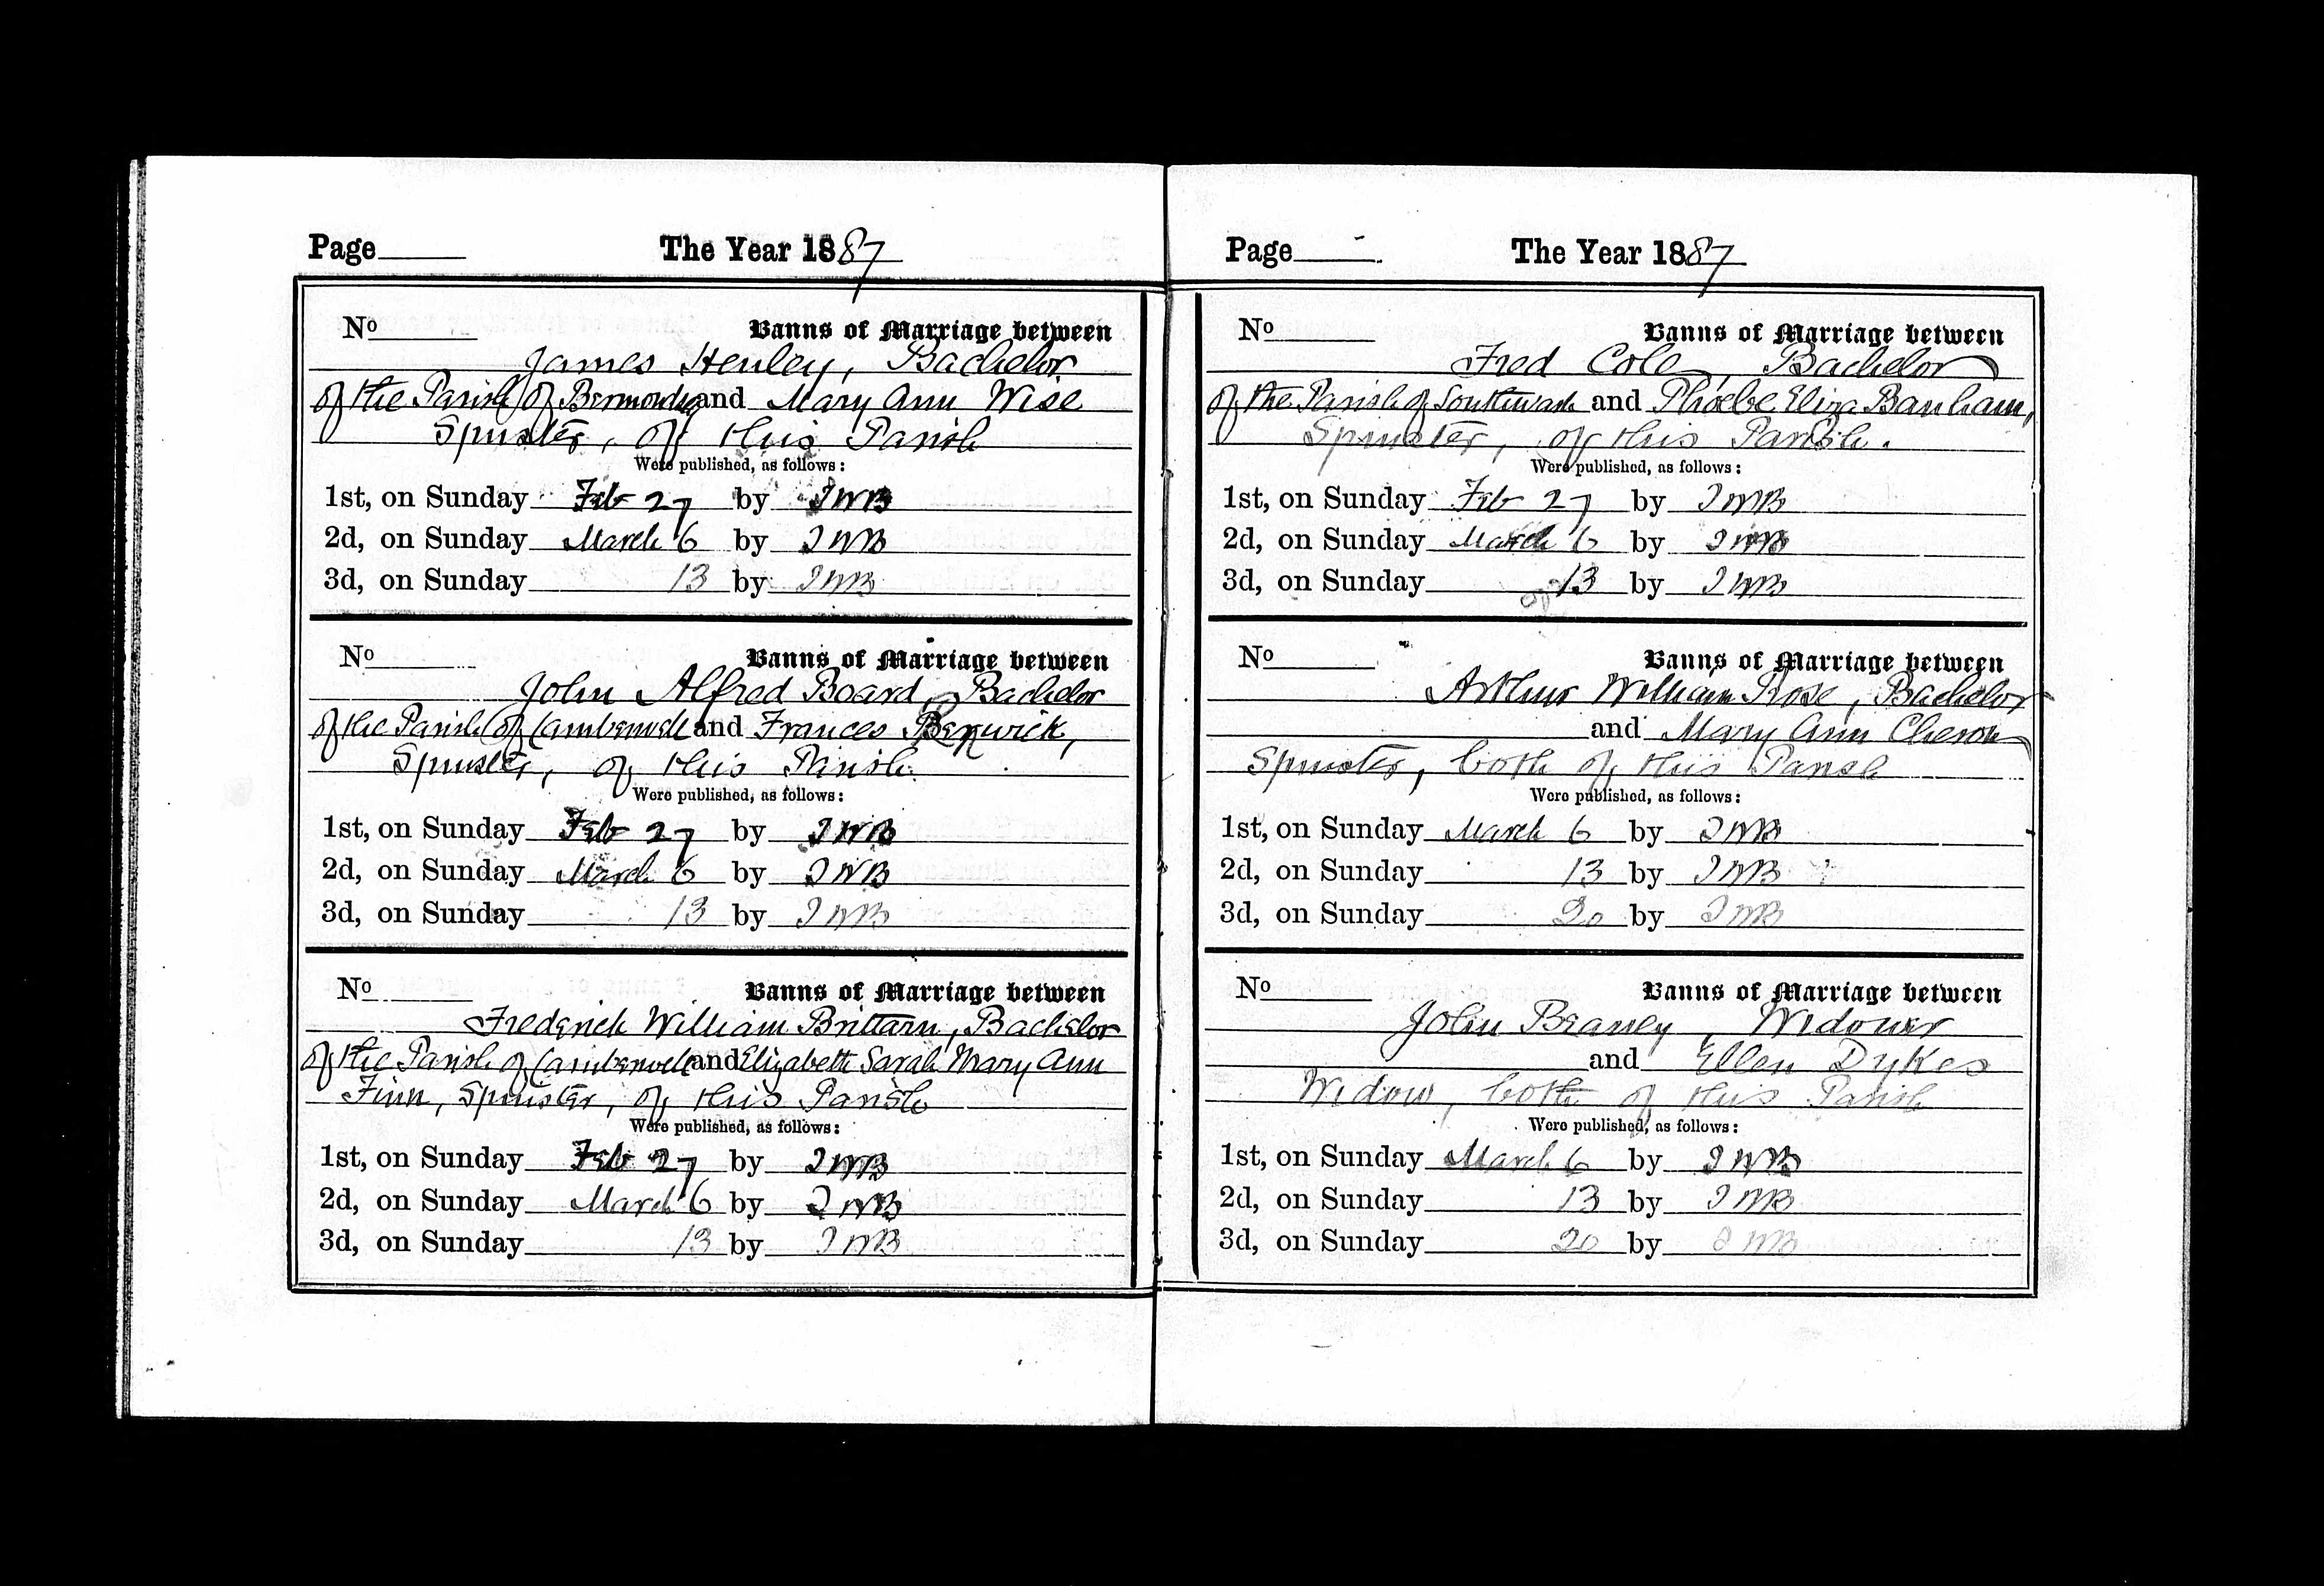 Page The Year 1887
No Banns of Marriage between
James Henley, Bachelor
of the Parish of Bermondsey and Mary Ann Wise
Spinster, of this Parish
Were published, as follows:
1st, on Sunday Feb 27 by JWB
2d, on Sunday March 6 by JWB
3d, on Sunday 13 by JWB
No Banns of Marriage between
John Alfred Board, Bachelor
of the Parish of Camberwell and Frances Berwick,
Spinster, of this Parish.
Were published, as follows:
1st, on Sunday Feb 27 by JWB
2d, on Sunday March 6 by JWB
3d, on Sunday 13 by JWB
No Banns of Marriage between
Frederick William Brittain, Bachelor
of the Parish of Camberwell and Elizabeth Sarah Mary Ann
Finn, Spinster, of this Parish
Were published, as follows:
1st, on Sunday Feb 27 by JWB
2d, on Sunday March 6 by JWB
3d, on Sunday 13 by JWB
Page The Year 1887
No Banns of Marriage between
Fred Cole, Bachelor
of the Parish of Southwark and Phoebe Eliza Banham,
Spinster, of this Parish.
Were published, as follows:
1st, on Sunday Feb 27 by JWB
2d, on Sunday March 6 by JWB
3d, on Sunday 13 by JWB
No Banns of Marriage between
Arthur William Rose, Bachelor
and Mary Ann
Spinster, both of this Parish
Were published, as follows:
1st, on Sunday March 6 by JWB
2d, on Sunday 13 by JWB
3d, on Sunday 20 by JWB
No Banns of Marriage between
John , Widower
and Ellen Dykes
Widow, both of this Parish
Were published, as follows:
1st, on Sunday March 6 by JWB
2d, on Sunday 13 by JWB
3d, on Sunday 20 by JWB